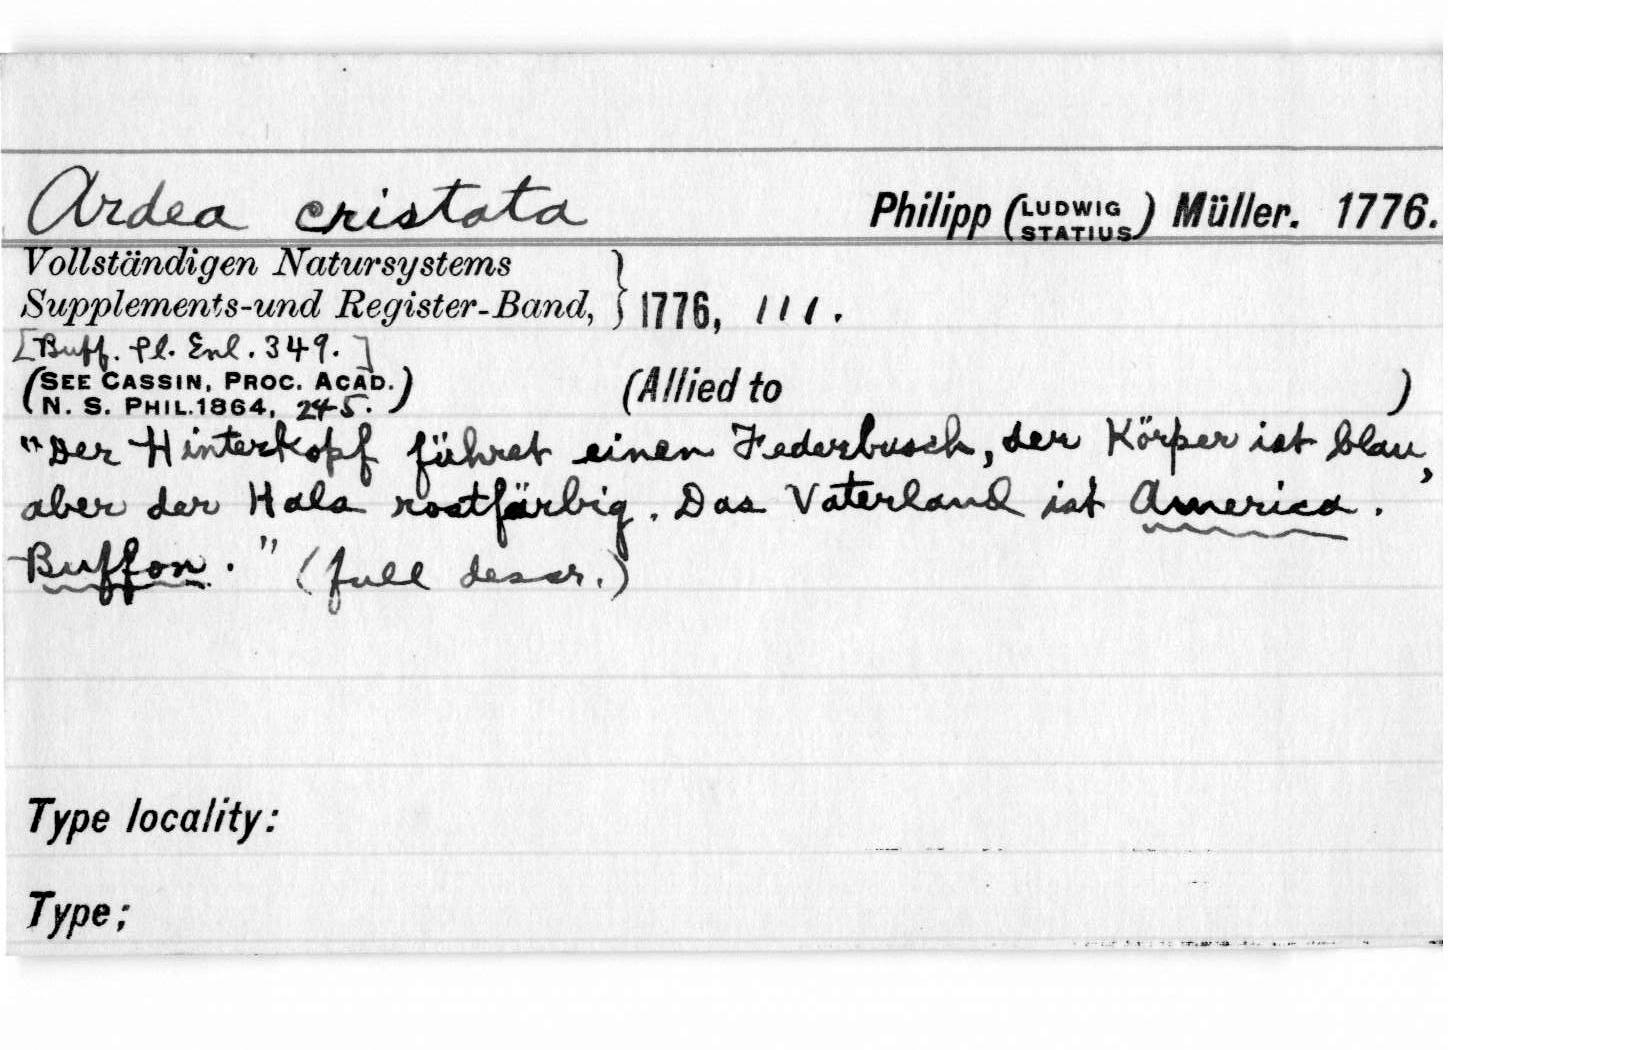 Ardea cristata Philipp (LUDWIG STATIUS) Müller. 1776.
Vollständigen Natursystems
Supplements-und Register-Band, } 1776, 111.
[Buff. Pl. Enl. 349.]
(SEE CASSIN, PROC. ACAD. (Allied to )
N. S. PHIL.1864, 245.)
"Der Hinterkopf führet einen Federbusch, der Körper ist blau,
aber der Hals rostfärbig. Das Vaterland ist America.
Buffon." (full descr.)
Type locality:
Type;